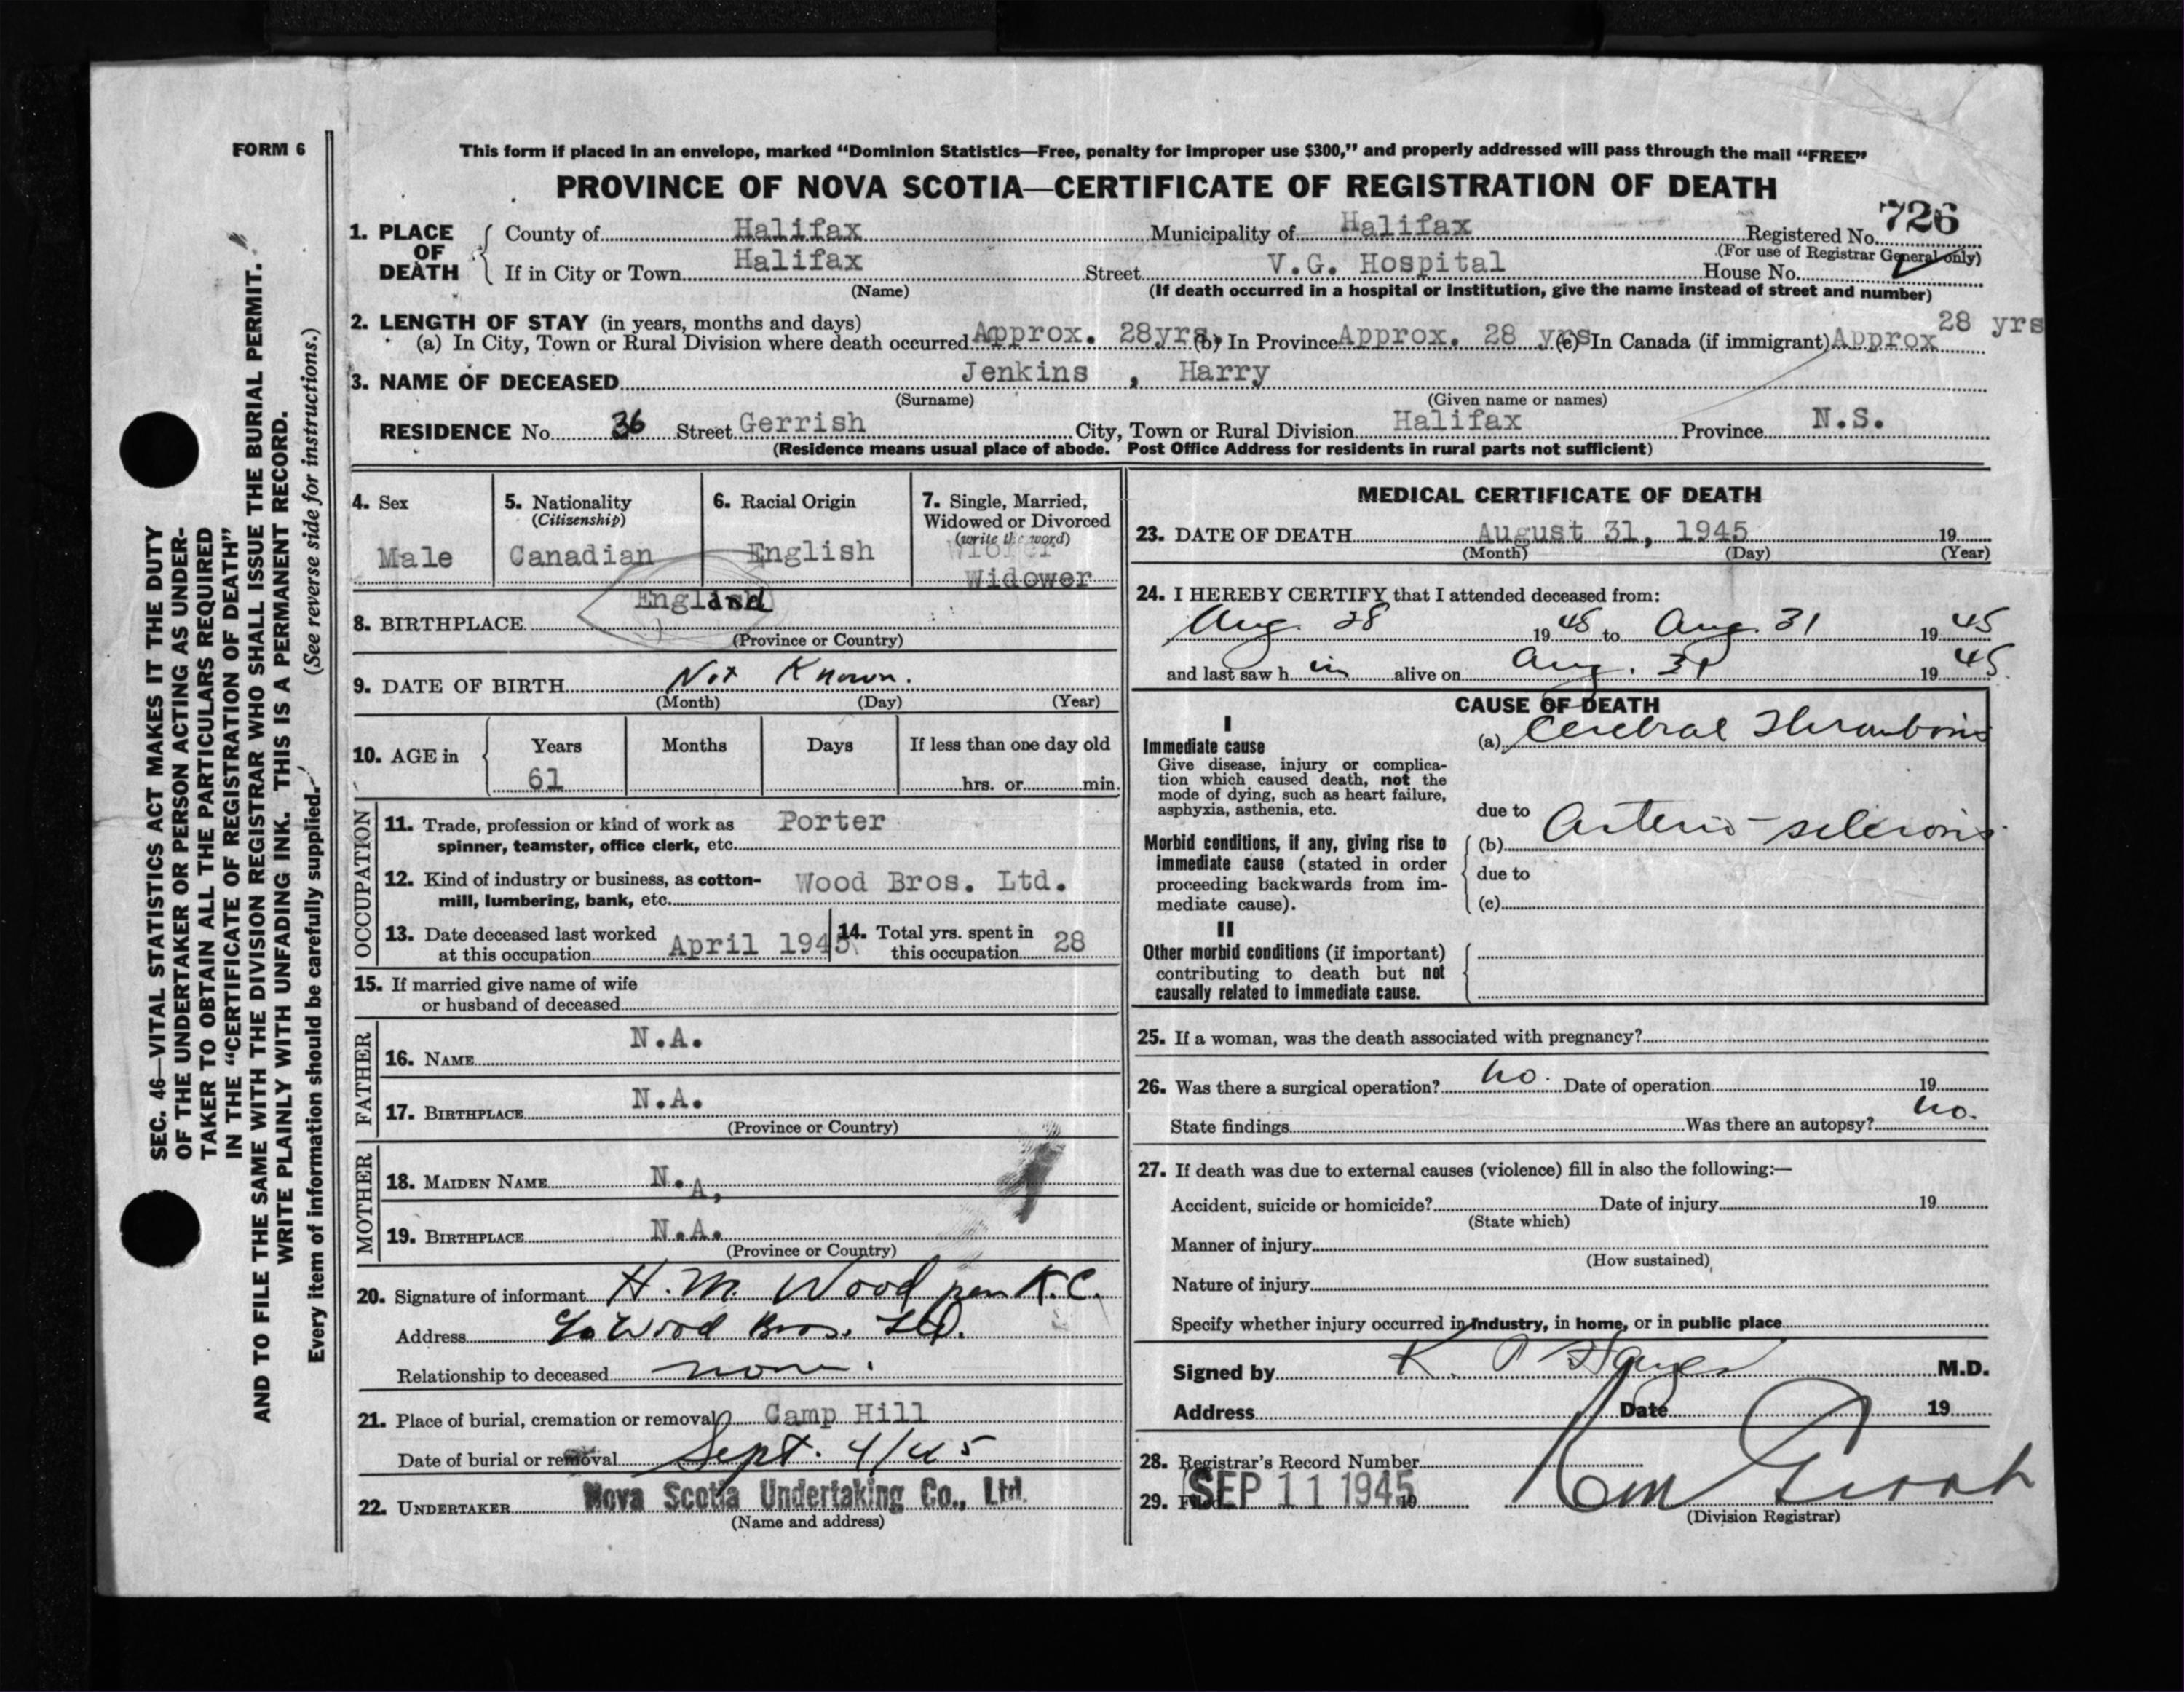 FORM 6
SEC. 46—VITAL STATISTICS ACT MAKES IT THE DUTY
OF THE UNDERTAKER OR PERSON ACTING AS UNDER-
TAKER TO OBTAIN ALL THE PARTICULARS REQUIRED
IN THE "CERTIFICATE OF REGISTRATION OF DEATH"
AND TO FILE THE SAME WITH THE DIVISION REGISTRAR WHO SHALL ISSUE THE BURIAL PERMIT.
WRITE PLAINLY WITH UNFADING INK. THIS IS A PERMANENT RECORD.
Every item of information should be carefully supplied. (See reverse side for instructions.)
This form if placed in an envelope, marked "Dominion Statistics—Free, penalty for improper use $300," and properly addressed will pass through the mail "FREE"
PROVINCE OF NOVA SCOTIA—CERTIFICATE OF REGISTRATION OF DEATH
1. PLACE OF DEATH County of Halifax Municipality of Halifax Registered No. 726
(For use of Registrar General only)
If in City or Town Halifax Street V.G. Hospital House No.
(Name) (If death occurred in a hospital or institution, give the name instead of street and number)
2. LENGTH OF STAY (in years, months and days)
(a) In City, Town or Rural Division where death occurred Approx. 28yrs. (b) In Province Approx. 28 yrs (c) In Canada (if immigrant) Approx 28 yrs
3. NAME OF DECEASED Jenkins , Harry
(Surname) (Given name or names)
RESIDENCE No. 36 Street Gerrish City, Town or Rural Division Halifax Province N.S.
(Residence means usual place of abode. Post Office Address for residents in rural parts not sufficient)
4. Sex
Male
5. Nationality
(Citizenship)
Canadian
6. Racial Origin
English
7. Single, Married,
Widowed or Divorced
(write the word)
Widower
8. BIRTHPLACE England
(Province or Country)
9. DATE OF BIRTH Not Known.
(Month) (Day) (Year)
10. AGE in Years Months Days If less than one day old
61 hrs. or min.
OCCUPATION
11. Trade, profession or kind of work as Porter
spinner, teamster, office clerk, etc.
12. Kind of industry or business, as cotton- Wood Bros. Ltd.
mill, lumbering, bank, etc.
13. Date deceased last worked
at this occupation April 1945
14. Total yrs. spent in
this occupation 28
15. If married give name of wife
or husband of deceased
FATHER
16. NAME N.A.
17. BIRTHPLACE N.A.
(Province or Country)
MOTHER
18. MAIDEN NAME N.A,
19. BIRTHPLACE N.A.
(Province or Country)
20. Signature of informant H. M. Wood per K.C.
Address c/o Wood Bros. Ltd.
Relationship to deceased none.
21. Place of burial, cremation or removal Camp Hill
Date of burial or removal Sept. 4/45
22. UNDERTAKER Nova Scotia Undertaking Co., Ltd.
(Name and address)
MEDICAL CERTIFICATE OF DEATH
23. DATE OF DEATH August 31, 1945 19
(Month) (Day) (Year)
24. I HEREBY CERTIFY that I attended deceased from:
Aug. 28 1945 to Aug. 31 1945
and last saw h im alive on Aug. 31 1945.
CAUSE OF DEATH
I
Immediate cause
Give disease, injury or complica-
tion which caused death, not the
mode of dying, such as heart failure,
asphyxia, asthenia, etc.
(a) Cerebral Thrombosis
due to
Morbid conditions, if any, giving rise to
immediate cause (stated in order
proceeding backwards from im-
mediate cause).
(b) Arterio-sclerosis
due to
(c)
II
Other morbid conditions (if important)
contributing to death but not
causally related to immediate cause.
25. If a woman, was the death associated with pregnancy?
26. Was there a surgical operation? no. Date of operation 19
State findings Was there an autopsy? no.
27. If death was due to external causes (violence) fill in also the following:—
Accident, suicide or homicide? Date of injury 19
(State which)
Manner of injury
(How sustained)
Nature of injury
Specify whether injury occurred in industry, in home, or in public place
Signed by K. P. Hayes M.D.
Address Date 19
28. Registrar's Record Number
29. Filed SEP 11 1945 19
(Division Registrar)